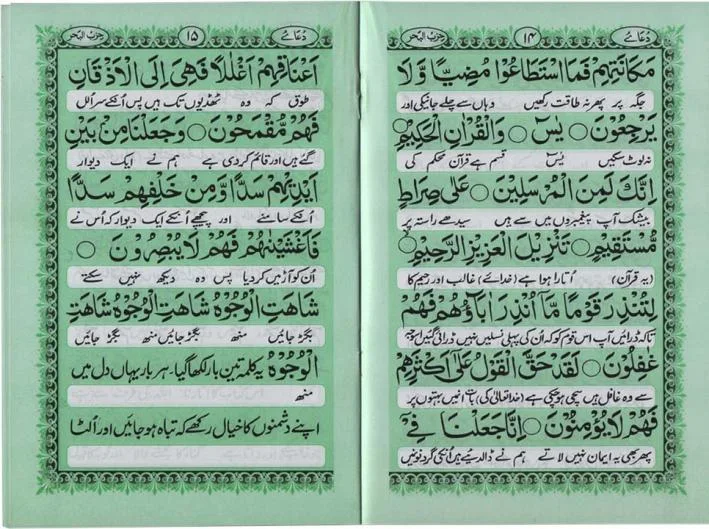 دُعائے ۱۴ حزبُ البحر
مَكَانَتِهِمْ فَمَا اسْتَطَاعُوْا مُضِيًّا وَّلَا
جگہ پر پھر نہ طاقت رکھیں وہاں سے چلے جانیکی اور
يَرْجِعُوْنَ ○ يٰسٓ ○ وَالْقُرْاٰنِ الْحَكِيْمِ ○
نہ لوٹ سکیں یٰسٓ قسم ہے قرآن محکم کی
اِنَّكَ لَمِنَ الْمُرْسَلِيْنَ ○ عَلٰى صِرَاطٍ
بیشک آپ پیغمبروں میں سے ہیں سیدھے راستہ پر
مُّسْتَقِيْمٍ ○ تَنْزِيْلَ الْعَزِيْزِ الرَّحِيْمِ ○
(یہ قرآن) اُتارا ہوا ہے (خدائے) غالب اور رحیم کا
لِتُنْذِرَ قَوْمًا مَّآ اُنْذِرَ اٰبَآؤُهُمْ فَهُمْ
تاکہ ڈرائیں آپ اس قوم کو کہ اُن کی پہلی نسلیں نہیں ڈرائی گئیں اس وجہ
غٰفِلُوْنَ ○ لَقَدْ حَقَّ الْقَوْلُ عَلٰٓى اَكْثَرِهِمْ
سے وہ غافل ہیں سچی ہو چکی ہے (خدا تعالیٰ کی) بات انمیں بہتوں پر
فَهُمْ لَا يُؤْمِنُوْنَ ○ اِنَّا جَعَلْنَا فِيْٓ
پھر بھی یہ ایمان نہیں لاتے ہم نے ڈالدیئے ہیں اُنکی گردنونمیں
دُعائے ۱۵ حزبُ البحر
اَعْنَاقِهِمْ اَغْلٰلًا فَهِيَ اِلَى الْاَذْقَانِ
طوق کہ وہ ٹھڈیوں تک ہیں پس اُنکے سر اُلل
فَهُمْ مُّقْمَحُوْنَ ○ وَجَعَلْنَا مِنْۢ بَيْنِ
گئے ہیں اور قائم کردی ہے ہم نے ایک دیوار
اَيْدِيْهِمْ سَدًّا وَّمِنْ خَلْفِهِمْ سَدًّا
اُنکے سامنے اور پیچھے اُنکے ایک دیوار کہ اُس نے
فَاَغْشَيْنٰهُمْ فَهُمْ لَا يُبْصِرُوْنَ ○
اُن کو آڑ میں کردیا پس وہ دیکھ نہیں سکتے
شَاهَتِ الْوُجُوْهُ شَاهَتِ الْوُجُوْهُ شَاهَتِ
بگڑ جائیں منھ بگڑ جائیں منھ بگڑ جائیں
الْوُجُوْهُ یہ کلمہ تین بار لکھا گیا۔ ہر بار یہاں دل میں
منھ
اپنے دشمنوں کا خیال رکھے کہ تباہ ہو جائیں اور اُلٹا